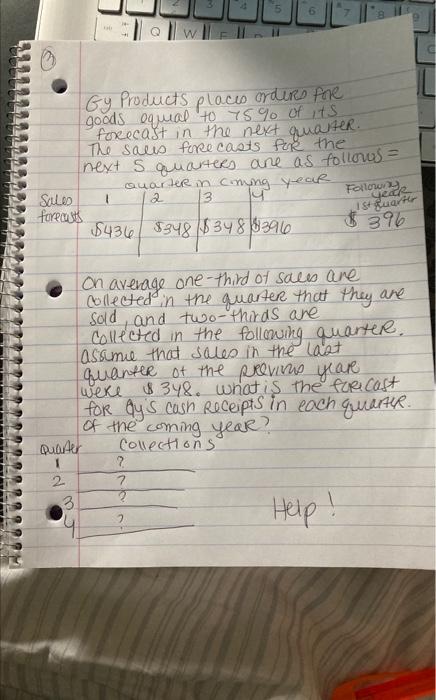 3
Gy Products places orders for
goods equal to 75% of its
forecast in the next quarter.
The sales forecasts for the
next 5 quarters are as follows =
quarter in coming year
Following year 1st quarter
1 2 3 4
Sales forecasts $436 $348 $348 $396 $396
On average one-third of sales are
collected in the quarter that they are
sold, and two-thirds are
collected in the following quarter.
assume that sales in the last
quarter of the previous year
were $348. what is the forecast
for Gy's cash receipts in each quarter.
of the coming year?
Quarter Collections
1 ?
2 ?
3 ?
4 ?
Help!
Q W